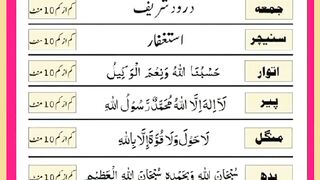 جمعہ درود شریف کم از کم 10 منٹ
سنیچر استغفار کم از کم 10 منٹ
اتوار حَسْبُنَا اللّٰهُ وَنِعْمَ الْوَكِيْلُ کم از کم 10 منٹ
پیر لَا اِلٰهَ اِلَّا اللّٰهُ مُحَمَّدٌ رَّسُوْلُ اللّٰهِ کم از کم 10 منٹ
منگل لَا حَوْلَ وَلَا قُوَّةَ اِلَّا بِاللّٰهِ کم از کم 10 منٹ
بدھ سُبْحَانَ اللّٰهِ وَبِحَمْدِهٖ سُبْحَانَ اللّٰهِ الْعَظِيْمِ کم از کم 10 منٹ